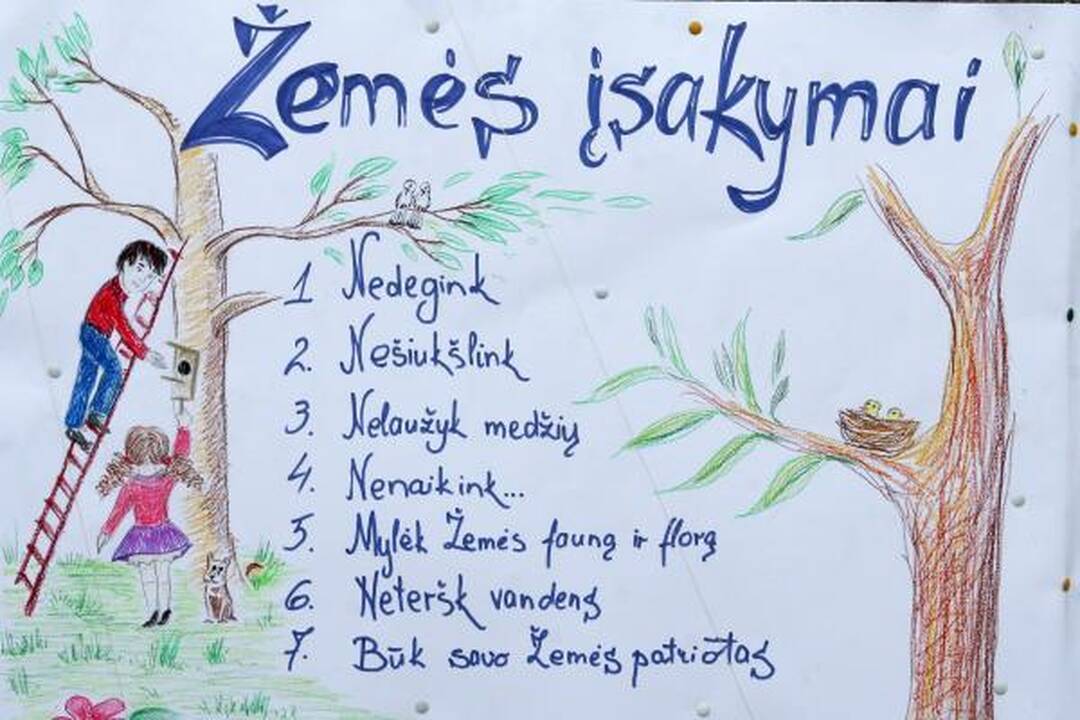 Žemės įsakymai
1 Nedegink
2. Nešiukšlink
3. Nelaužyk medžių
4. Nenaikink...
5. Mylėk Žemės fauną ir florą
6. Neteršk vandens
7. Būk savo Žemės patriotas